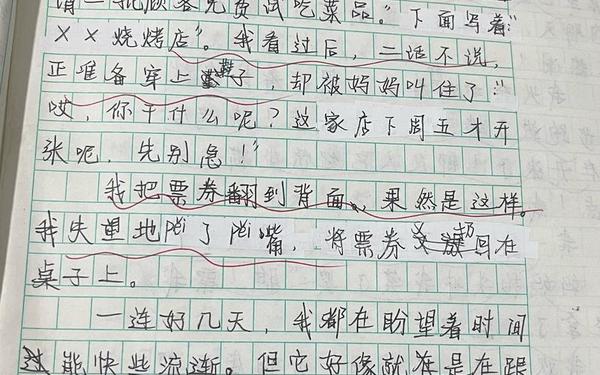 请一批顾客免费试吃菜品。"下面写着"
××烧烤店"。我看过后，二话不说，
正准备穿上鞋子，却被妈妈叫住了："
哎，你干什么呢？这家店下周五才开
张呢，先别急！"
我把票券翻到背面、果然是这样。
我失望地pēi了pēi嘴，将票券又放回在
桌子上。
一连好几天，我都在盼望着时间
能快些流逝。但它好像就是在跟